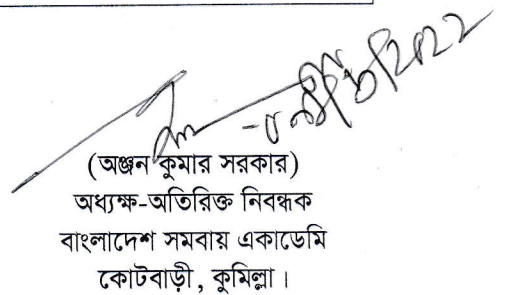 (অঞ্জন কুমার সরকার)
অধ্যক্ষ-অতিরিক্ত নিবন্ধক
বাংলাদেশ সমবায় একাডেমি
কোটবাড়ী, কুমিল্লা।